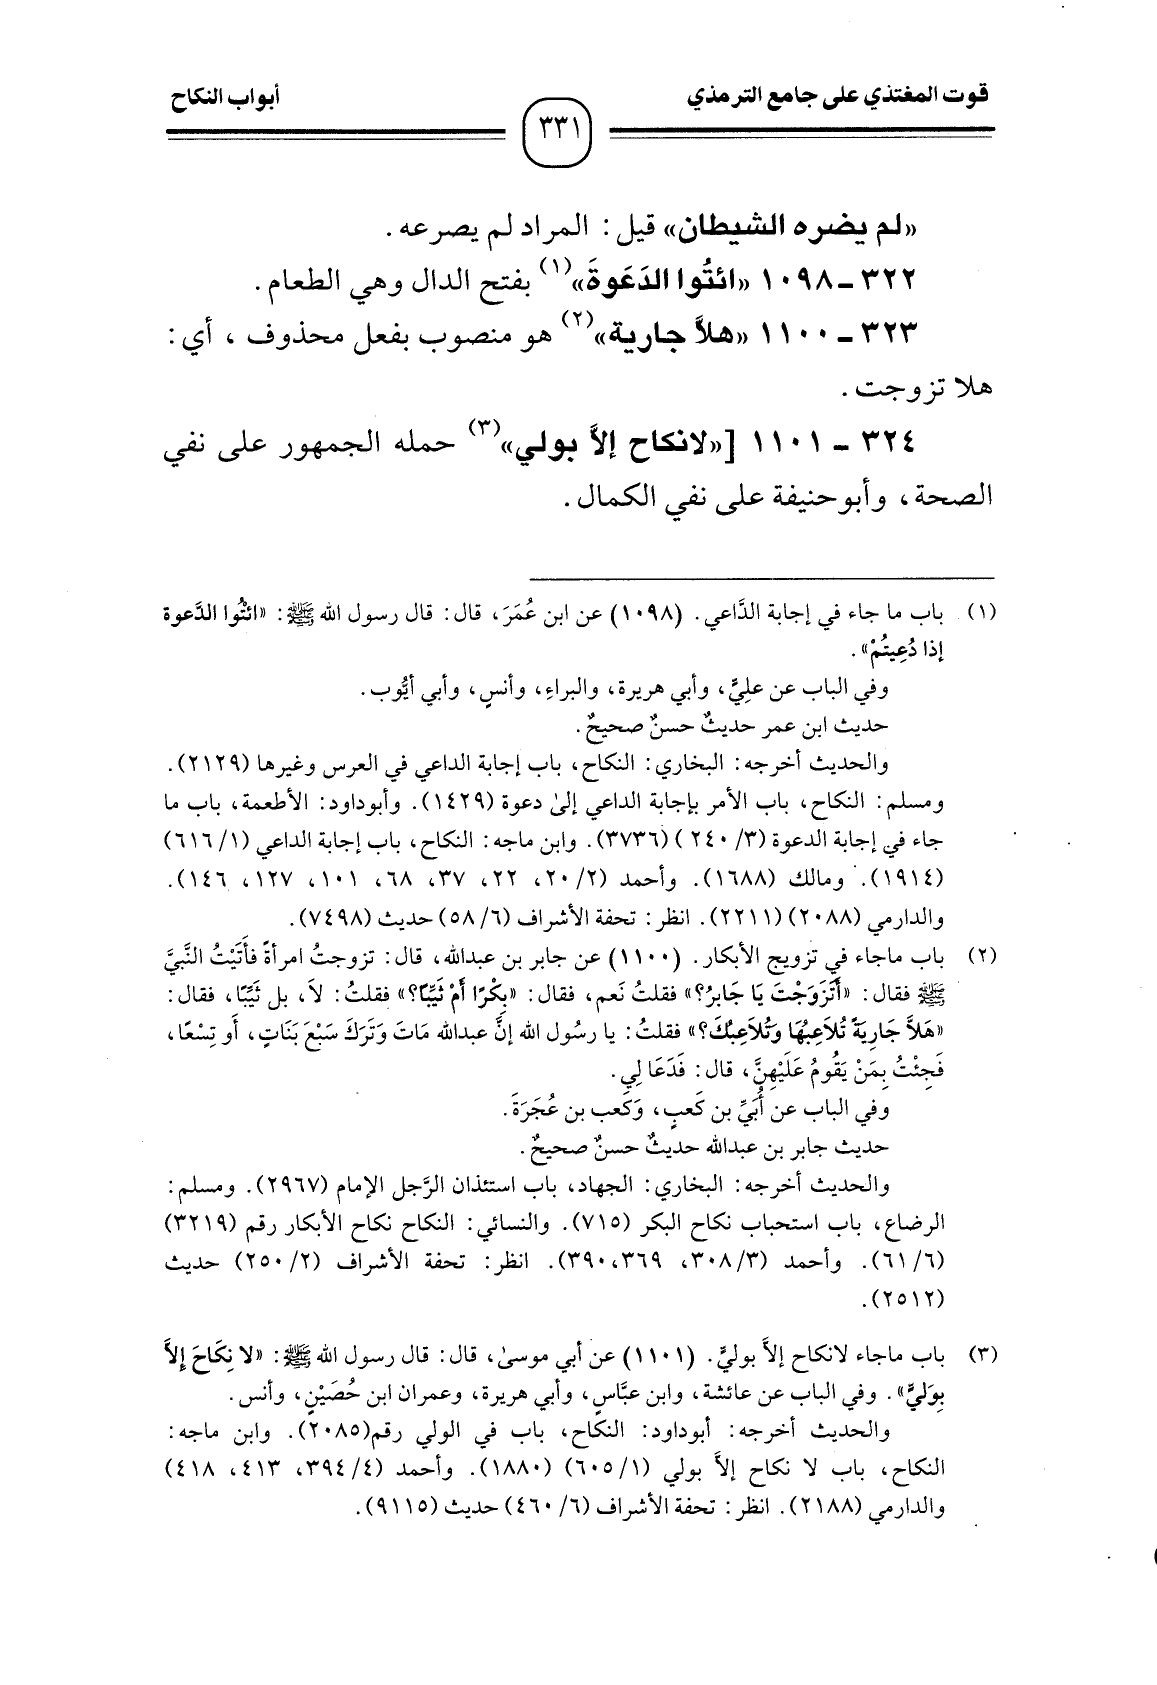 قوت المغتذي على جامع الترمذي
أبواب النكاح
٣٣١
«لم يضره الشيطان» قيل: المراد لم يصرعه.
٣٢٢ ـ ١٠٩٨ «ائتُوا الدَعَوةَ»(١) بفتح الدال وهي الطعام.
٣٢٣ ـ ١١٠٠ «هلاَّ جارية»(٢) هو منصوب بفعل محذوف ، أي:
هلا تزوجت.
٣٢٤ ـ ١١٠١ [«لانكاح إلاَّ بولي»(٣) حمله الجمهور على نفي
الصحة، وأبوحنيفة على نفي الكمال.
(١) باب ما جاء في إجابة الدَّاعي. (١٠٩٨) عن ابن عُمَرَ، قال: قال رسول الله ﷺ: «ائتُوا الدَّعوة
إذا دُعِيتُمْ».
وفي الباب عن عليٍّ، وأبي هريرة، والبراءِ، وأنسٍ، وأبي أيُّوب.
حديث ابن عمر حديثٌ حسنٌ صحيحٌ.
والحديث أخرجه: البخاري: النكاح، باب إجابة الداعي في العرس وغيرها (٢١٢٩).
ومسلم: النكاح، باب الأمر بإجابة الداعي إلىٰ دعوة (١٤٢٩). وأبوداود: الأطعمة، باب ما
جاء في إجابة الدعوة (٢٤٠/٣) (٣٧٣٦). وابن ماجه: النكاح، باب إجابة الداعي (٦١٦/١)
(١٩١٤). ومالك (١٦٨٨). وأحمد (٢٠/٢، ٢٢، ٣٧، ٦٨، ١٠١، ١٢٧، ١٤٦).
والدارمي (٢٠٨٨) (٢٢١١). انظر: تحفة الأشراف (٥٨/٦) حديث (٧٤٩٨).
(٢) باب ماجاء في تزويج الأبكار. (١١٠٠) عن جابر بن عبدالله، قال: تزوجتُ امرأةً فأَتَيْتُ النَّبيَّ
ﷺ فقال: «أَتَزَوَجْتَ يَا جَابرُ؟» فقلتُ نَعم، فقال: «بِكْرًا أَمْ ثَيِّبًا؟» فقلتُ: لاَ، بل ثَيِّبًا، فقال:
«هَلاَّ جَارِيَةً تُلاَعِبُهَا وَتُلاَعِبُكَ؟» فقلتُ: يا رسُول الله إنَّ عبدالله مَاتَ وَتَرَكَ سَبْعَ بَنَاتٍ، أَو تِسْعًا،
فَجِئْتُ بِمَنْ يَقُومُ عَلَيْهِنَّ، قال: فَدَعَا لِي.
وفي الباب عن أُبَيِّ بن كَعبٍ، وَكَعب بن عُجَرَةَ.
حديث جابر بن عبدالله حديثٌ حسنٌ صحيحٌ.
والحديث أخرجه: البخاري: الجهاد، باب استئذان الرَّجل الإمام (٢٩٦٧). ومسلم:
الرضاع، باب استحباب نكاح البكر (٧١٥). والنسائي: النكاح نكاح الأبكار رقم (٣٢١٩)
(٦١/٦). وأحمد (٣٠٨/٣، ٣٦٩،٣٩٠). انظر: تحفة الأشراف (٢٥٠/٢) حديث
(٢٥١٢).
(٣) باب ماجاء لانكاح إلاَّ بوليٍّ. (١١٠١) عن أبي موسىٰ، قال: قال رسول الله ﷺ: «لا نِكَاحَ إلاَّ
بِوَليٍّ». وفي الباب عن عائشة، وابن عبَّاسٍ، وأبي هريرة، وعمران ابن حُصَيْنٍ، وأنس.
والحديث أخرجه: أبوداود: النكاح، باب في الولي رقم(٢٠٨٥). وابن ماجه:
النكاح، باب لا نكاح إلاَّ بولي (٦٠٥/١) (١٨٨٠). وأحمد (٣٩٤/٤، ٤١٣، ٤١٨)
والدارمي (٢١٨٨). انظر: تحفة الأشراف (٤٦٠/٦) حديث (٩١١٥).